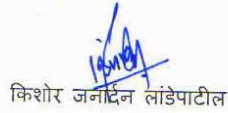 किशोर जनार्दन लांडेपाटील